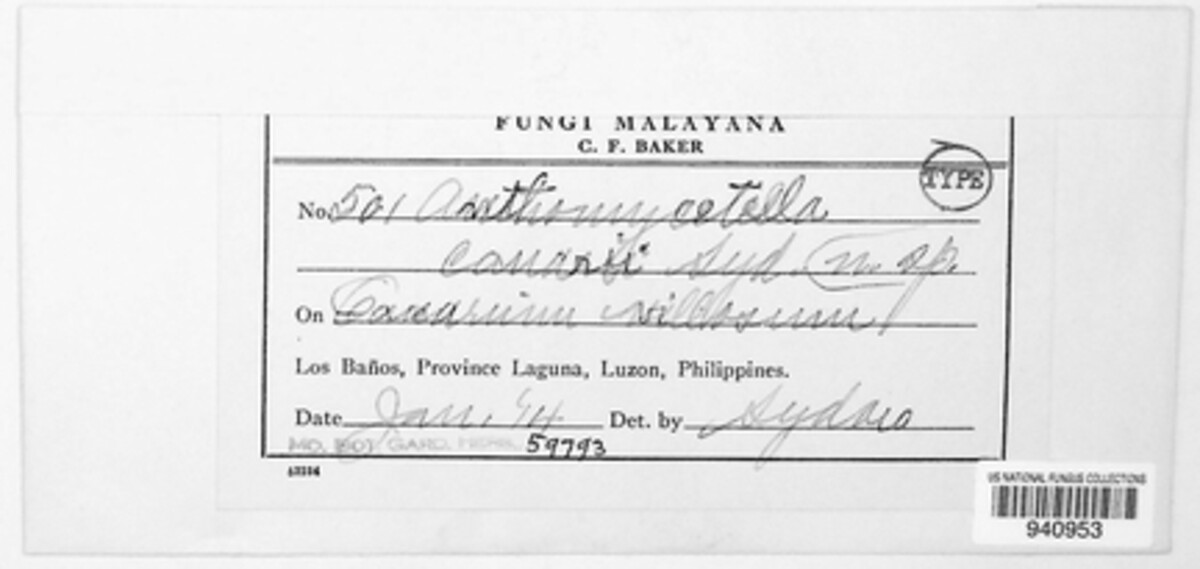 FUNGI MALAYANA
C. F. BAKER
TYPE
No. 501 Anthomycetella
canarii Syd. n. sp.
On Canarium villosum
Los Baños, Province Laguna, Luzon, Philippines.
Date Jan. '14 Det. by Sydow
MO. BOT. GARD. HERB. 59793
US NATIONAL FUNGUS COLLECTIONS
940953